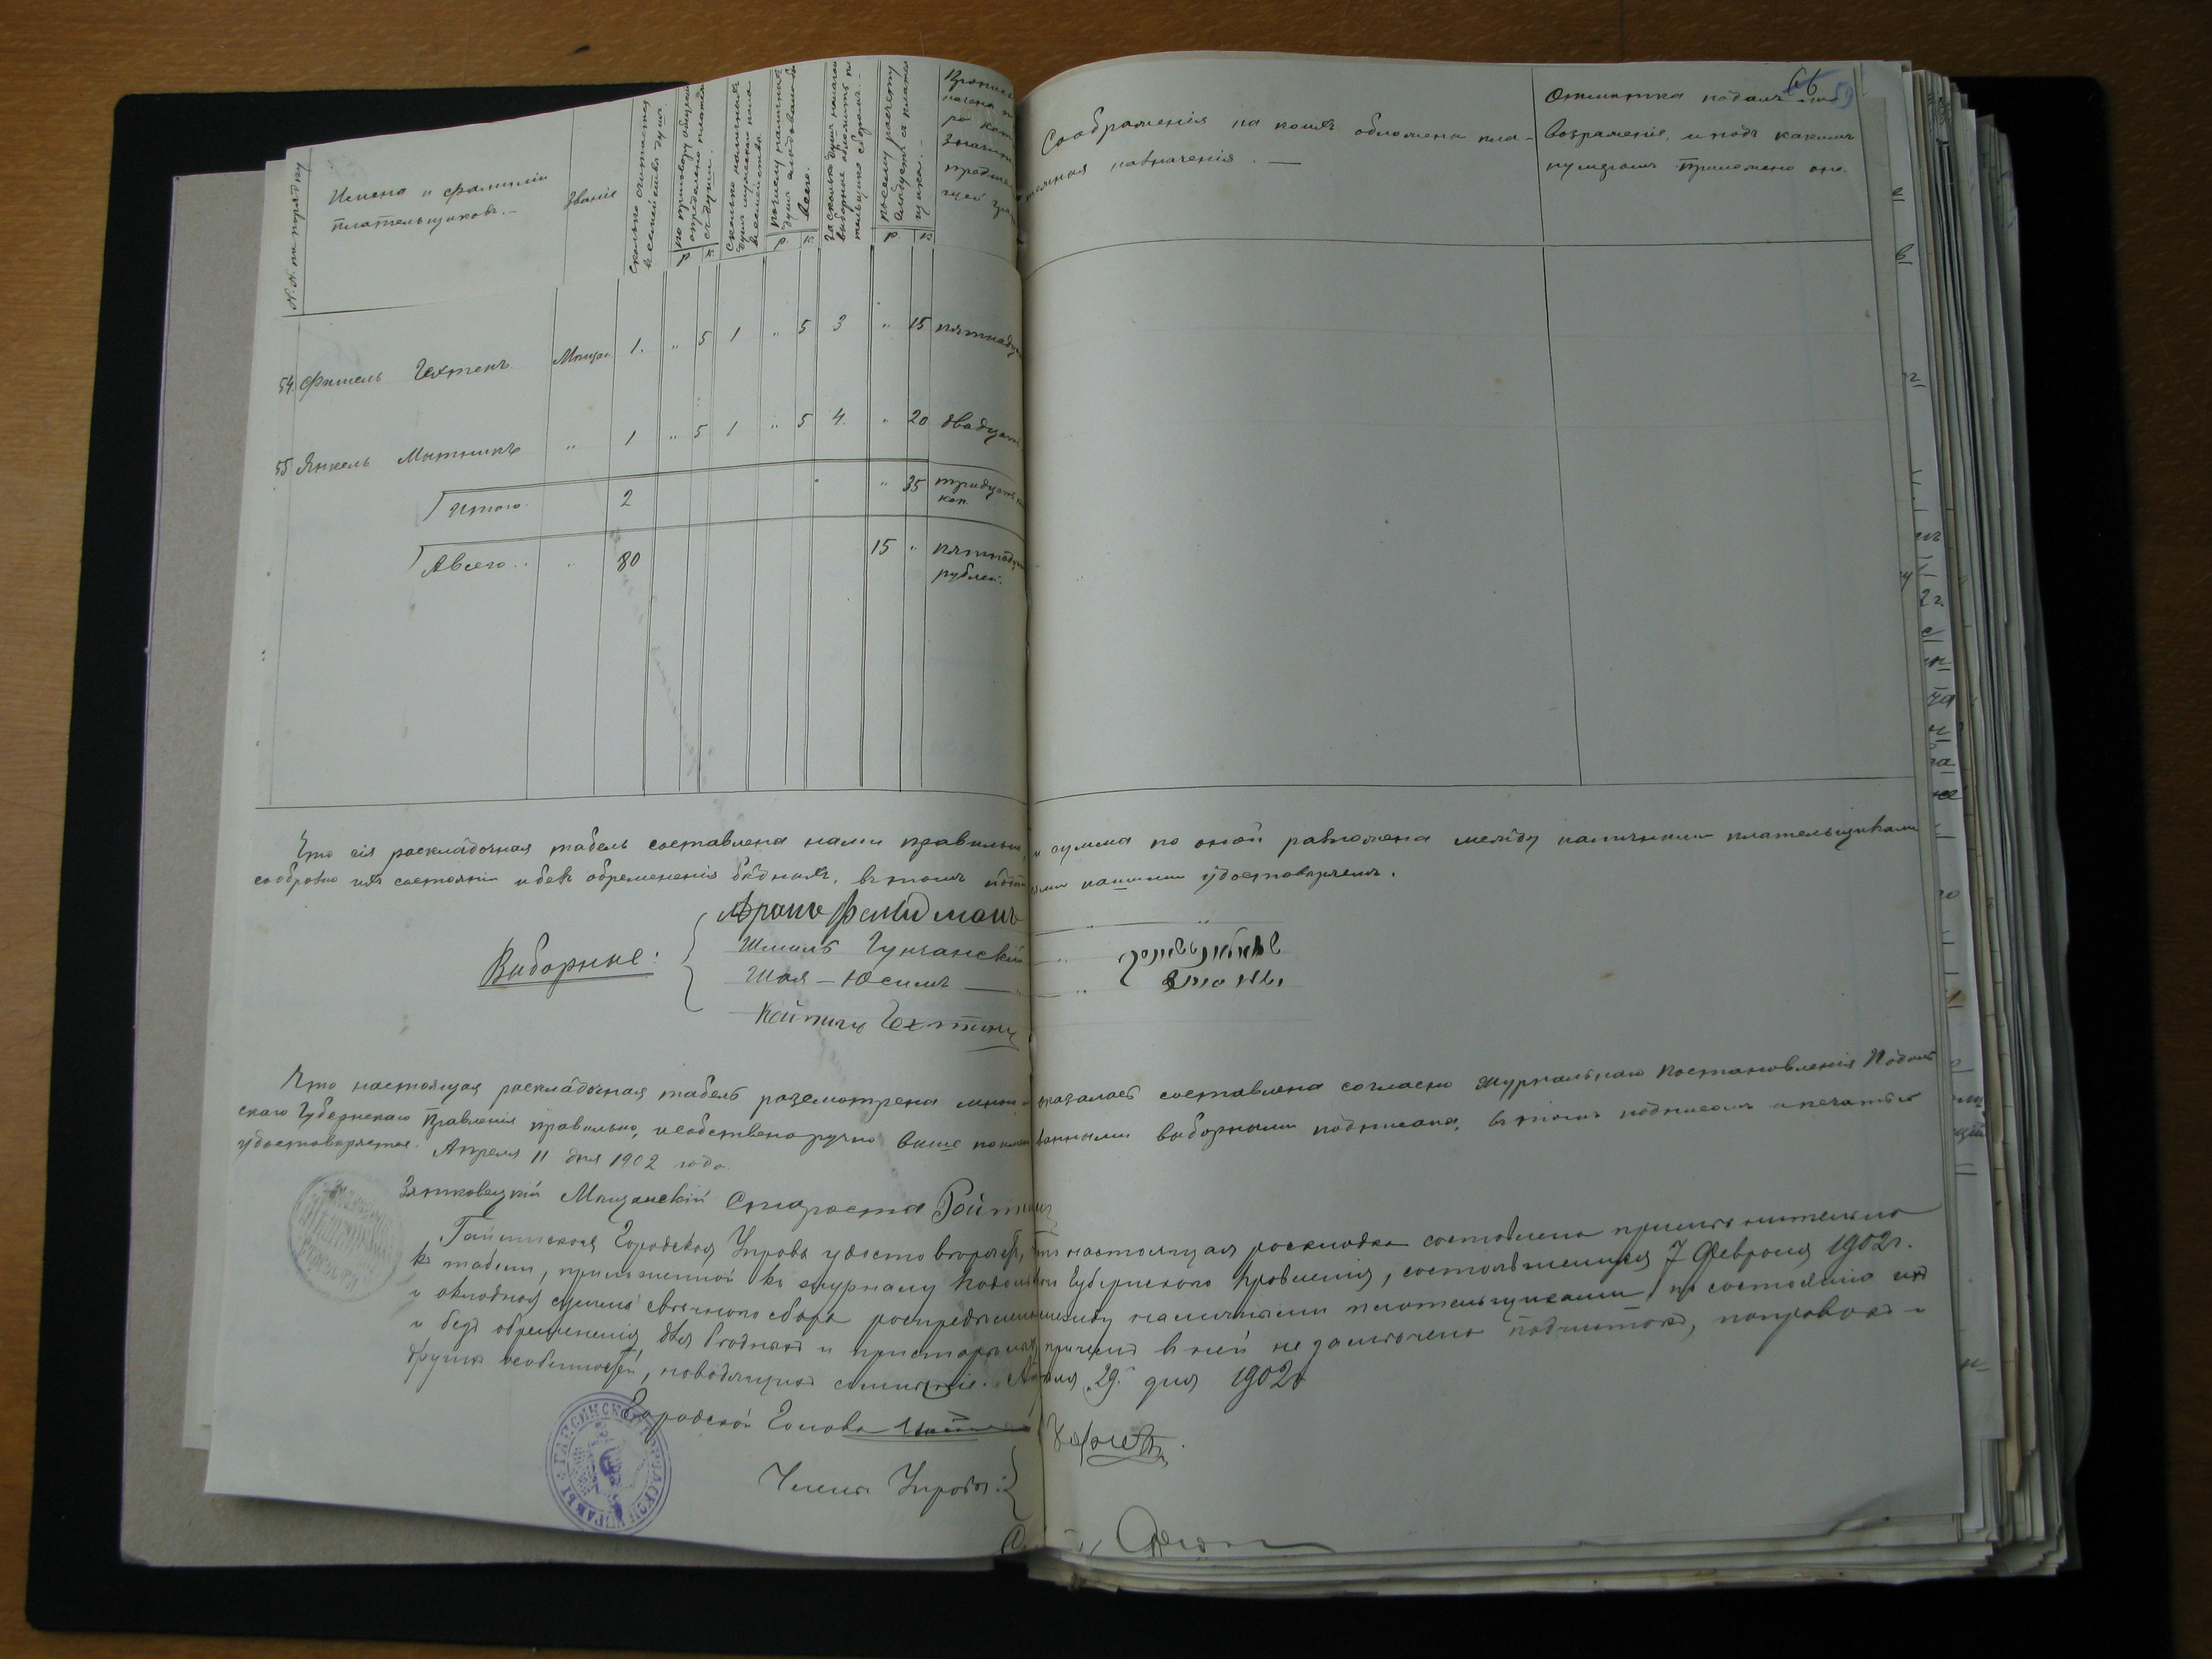 66 59
№№ по порядку
Имена и фамиліи плательщиковъ.
Званіе
Сколько считается въ семействѣ душъ.
По приговору общества опредѣлено платить съ души.
р. к.
Сколько наличныхъ душъ мужескаго пола въ семействѣ.
По чему наличныхъ душъ слѣдовало бы всего.
р. к.
За сколько душъ назначили выборные обложить плательщика сборомъ.
По сему расчету слѣдуетъ съ плательщика.
р. к.
Соображенія на коихъ обложены пла-
тежная назначенія. —
Отмѣтка подалъ ли
возраженіе, и подъ какимъ
нумеромъ приложено оно.
54. Фишель Гехтенъ Мѣщан. 1. " 5 1 " 5 3 " 15 пятнадц
55 Янкель Мытникъ " 1 " 5 1 " 5 4. " 20 двадцать
Итого. 2 " 35 тридцать
коп.
А всего.. 80 15 " пятнадц
рублей.
Что сія раскладочная табель составлена нами правильно, и сумма по оной разложена между наличными плательщиками
сообразно ихъ состоянію и безъ обремененія бѣдныхъ, въ томъ нашими удостовѣряемъ.
Выборные:
Аронъ Фельдманъ
Шмиль Гунчанскій
Шая-Юсимъ — "
Гехтенъ
Что настоящая раскладочная табель разсмотрена мною, оказалась составлена согласно журнальнаго постановленія Подоль
скаго Губернскаго Правленія правильно, и собственоручно выше поименованными выборными подписана, въ томъ подписомъ и печатью
удостовѣряется. Апреля 11 дня 1902 года.
Зятковецкій Мѣщанскій Староста
Гайсинская Городская Управа удостовѣряетъ, что настоящая раскладка составлена примѣнительно
къ табели, приложенной къ журналу Подольскаго Губернскаго Правленія, состоявшемуся 7 Февраля 1902 г.
и окладная сумма свѣчнаго сбора распредѣлена между наличными плательщиками, по состоянію ихъ
и безъ обремененія для бѣдныхъ и престарѣлыхъ, причемъ въ ней не замѣчено подчистокъ, поправокъ и
другихъ особенностей, наводящихъ сомнѣніе. Апреля 29 дня 1902 г.
Городской Голова
Члены Управы:
ГАЙСИНСКОЙ ГОРОДСКОЙ УПРАВЫ